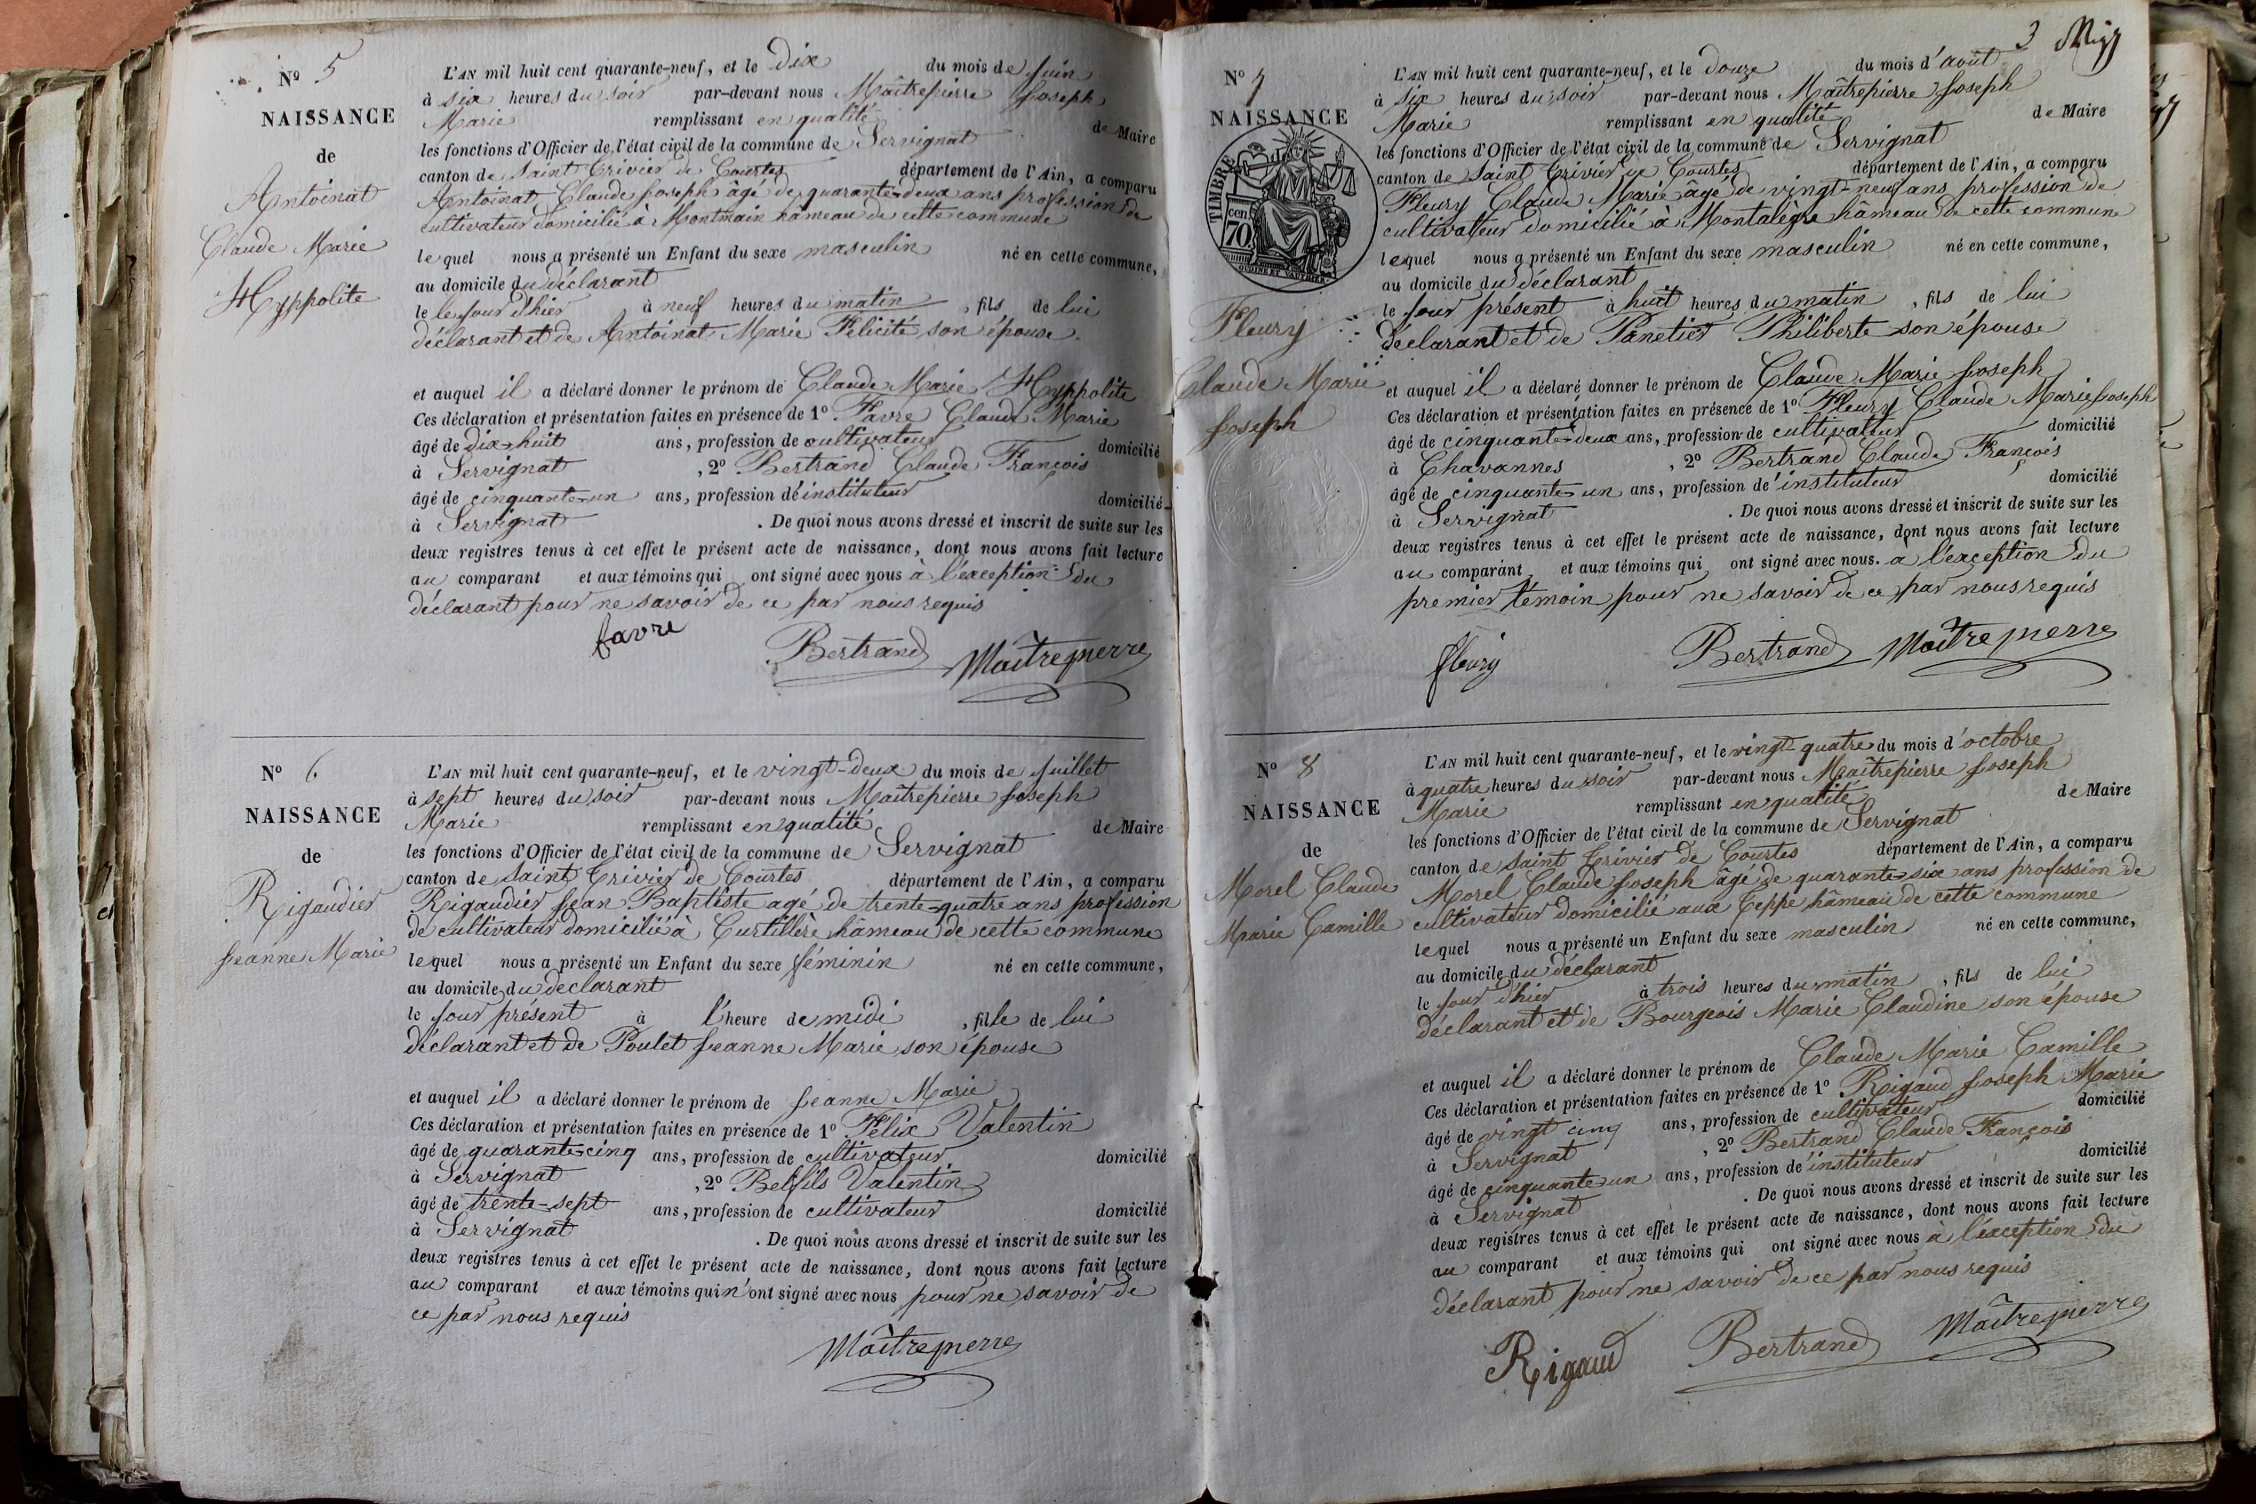 Nº 5
NAISSANCE
de
Antoinat
Claude Marie
Hyppolite
L'AN mil huit cent quarante-neuf, et le dix du mois de Juin
à six heures du soir par-devant nous Maîtrepierre Joseph
Marie remplissant en qualité de Maire
les fonctions d'Officier de l'état civil de la commune de Servignat
canton de Saint Trivier de Courtes département de l'Ain, a comparu
Antoinat Claude Joseph âgé de quarante-deux ans profession de
cultivateur domicilié à Montmain hâmeau de cette commune
lequel nous a présenté un Enfant du sexe masculin né en cette commune,
au domicile du déclarant
le le jour d'hier à neuf heures du matin, fils de lui
déclarant et de Antoinat Marie Félicité son épouse.
et auquel il a déclaré donner le prénom de Claude Marie Hyppolite
Ces déclaration et présentation faites en présence de 1º Favre Claude Marie
âgé de dix-huit ans, profession de cultivateur domicilié
à Servignat, 2º Bertrand Claude François
âgé de cinquante-un ans, profession d'instituteur domicilié
à Servignat. De quoi nous avons dressé et inscrit de suite sur les
deux registres tenus à cet effet le présent acte de naissance, dont nous avons fait lecture
au comparant et aux témoins qui ont signé avec nous à l'exception du
déclarant pour ne savoir de ce par nous requis
favre Bertrand Maîtrepierre
Nº 6
NAISSANCE
de
Rigaudier
Jeanne Marie
L'AN mil huit cent quarante-neuf, et le vingt-deux du mois de Juillet
à sept heures du soir par-devant nous Maîtrepierre Joseph
Marie remplissant en qualité de Maire
les fonctions d'Officier de l'état civil de la commune de Servignat
canton de Saint Trivier de Courtes département de l'Ain, a comparu
Rigaudier Jean Baptiste agé de trente-quatre ans profession
de cultivateur domicilié à Curtillère hâmeau de cette commune
lequel nous a présenté un Enfant du sexe féminin né en cette commune,
au domicile du déclarant
le jour présent à l'heure de midi, fille de lui
déclarant et de Poulet Jeanne Marie son épouse
et auquel il a déclaré donner le prénom de Jeanne Marie
Ces déclaration et présentation faites en présence de 1º Félix Valentin
âgé de quarante-cinq ans, profession de cultivateur domicilié
à Servignat, 2º Belfils Valentin
âgé de trente-sept ans, profession de cultivateur domicilié
à Servignat. De quoi nous avons dressé et inscrit de suite sur les
deux registres tenus à cet effet le présent acte de naissance, dont nous avons fait lecture
au comparant et aux témoins qui n'ont signé avec nous pour ne savoir de
ce par nous requis
Maîtrepierre
3
Nº 7
NAISSANCE
TIMBRE
cen
70
Fleury
Claude Marie
Joseph
L'AN mil huit cent quarante-neuf, et le douze du mois d'août
à six heures du soir par-devant nous Maîtrepierre Joseph
Marie remplissant en qualité de Maire
les fonctions d'Officier de l'état civil de la commune de Servignat
canton de Saint Trivier de Courtes département de l'Ain, a comparu
Fleury Claude Marie âgé de vingt-neuf ans profession de
cultivateur domicilié à Montalègre hâmeau de cette commune
lequel nous a présenté un Enfant du sexe masculin né en cette commune,
au domicile du déclarant
le jour présent à huit heures du matin, fils de lui
déclarant et de Panetier Philiberte son épouse
et auquel il a déclaré donner le prénom de Claude Marie Joseph
Ces déclaration et présentation faites en présence de 1º Fleury Claude Marie Joseph
âgé de cinquante-deux ans, profession de cultivateur domicilié
à Chavannes, 2º Bertrand Claude François
âgé de cinquante-un ans, profession d'instituteur domicilié
à Servignat. De quoi nous avons dressé et inscrit de suite sur les
deux registres tenus à cet effet le présent acte de naissance, dont nous avons fait lecture
au comparant et aux témoins qui ont signé avec nous. a l'exception du
premier témoin pour ne savoir de ce par nous requis
fleury Bertrand Maîtrepierre
Nº 8
NAISSANCE
de
Morel Claude
Marie Camille
L'AN mil huit cent quarante-neuf, et le vingt-quatre du mois d'octobre
à quatre heures du soir par-devant nous Maîtrepierre Joseph
Marie remplissant en qualité de Maire
les fonctions d'Officier de l'état civil de la commune de Servignat
canton de Saint Trivier de Courtes département de l'Ain, a comparu
Morel Claude Joseph âgé de quarante-six ans profession de
cultivateur domicilié aux Teppe hâmeau de cette commune
lequel nous a présenté un Enfant du sexe masculin né en cette commune,
au domicile du déclarant
le jour d'hier à trois heures du matin, fils de lui
déclarant et de Bourgeois Marie Claudine son épouse
et auquel il a déclaré donner le prénom de Claude Marie Camille
Ces déclaration et présentation faites en présence de 1º Rigaud Joseph Marie
âgé de vingt cinq ans, profession de cultivateur domicilié
à Servignat, 2º Bertrand Claude François
âgé de cinquante-un ans, profession d'instituteur domicilié
à Servignat. De quoi nous avons dressé et inscrit de suite sur les
deux registres tenus à cet effet le présent acte de naissance, dont nous avons fait lecture
au comparant et aux témoins qui ont signé avec nous à l'exception du
déclarant pour ne savoir de ce par nous requis
Rigaud Bertrand Maîtrepierre